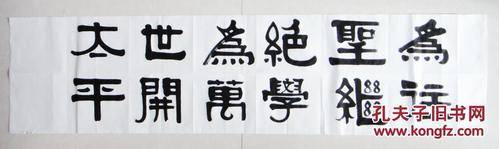 為往
聖繼
絕學
為萬
世開
太平
孔夫子旧书网
www.kongfz.com